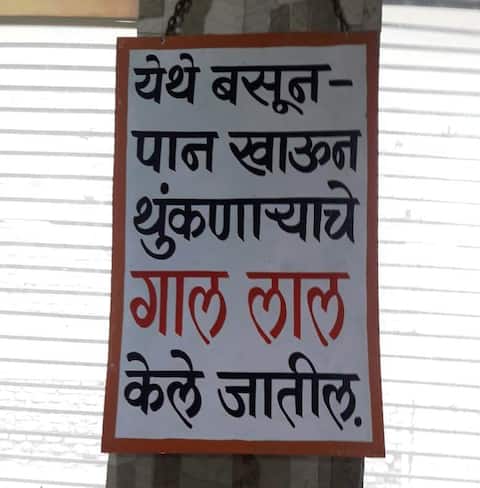 येथे बसून-
पान खाऊन
थुंकणाऱ्याचे
गाल लाल
केले जातील.